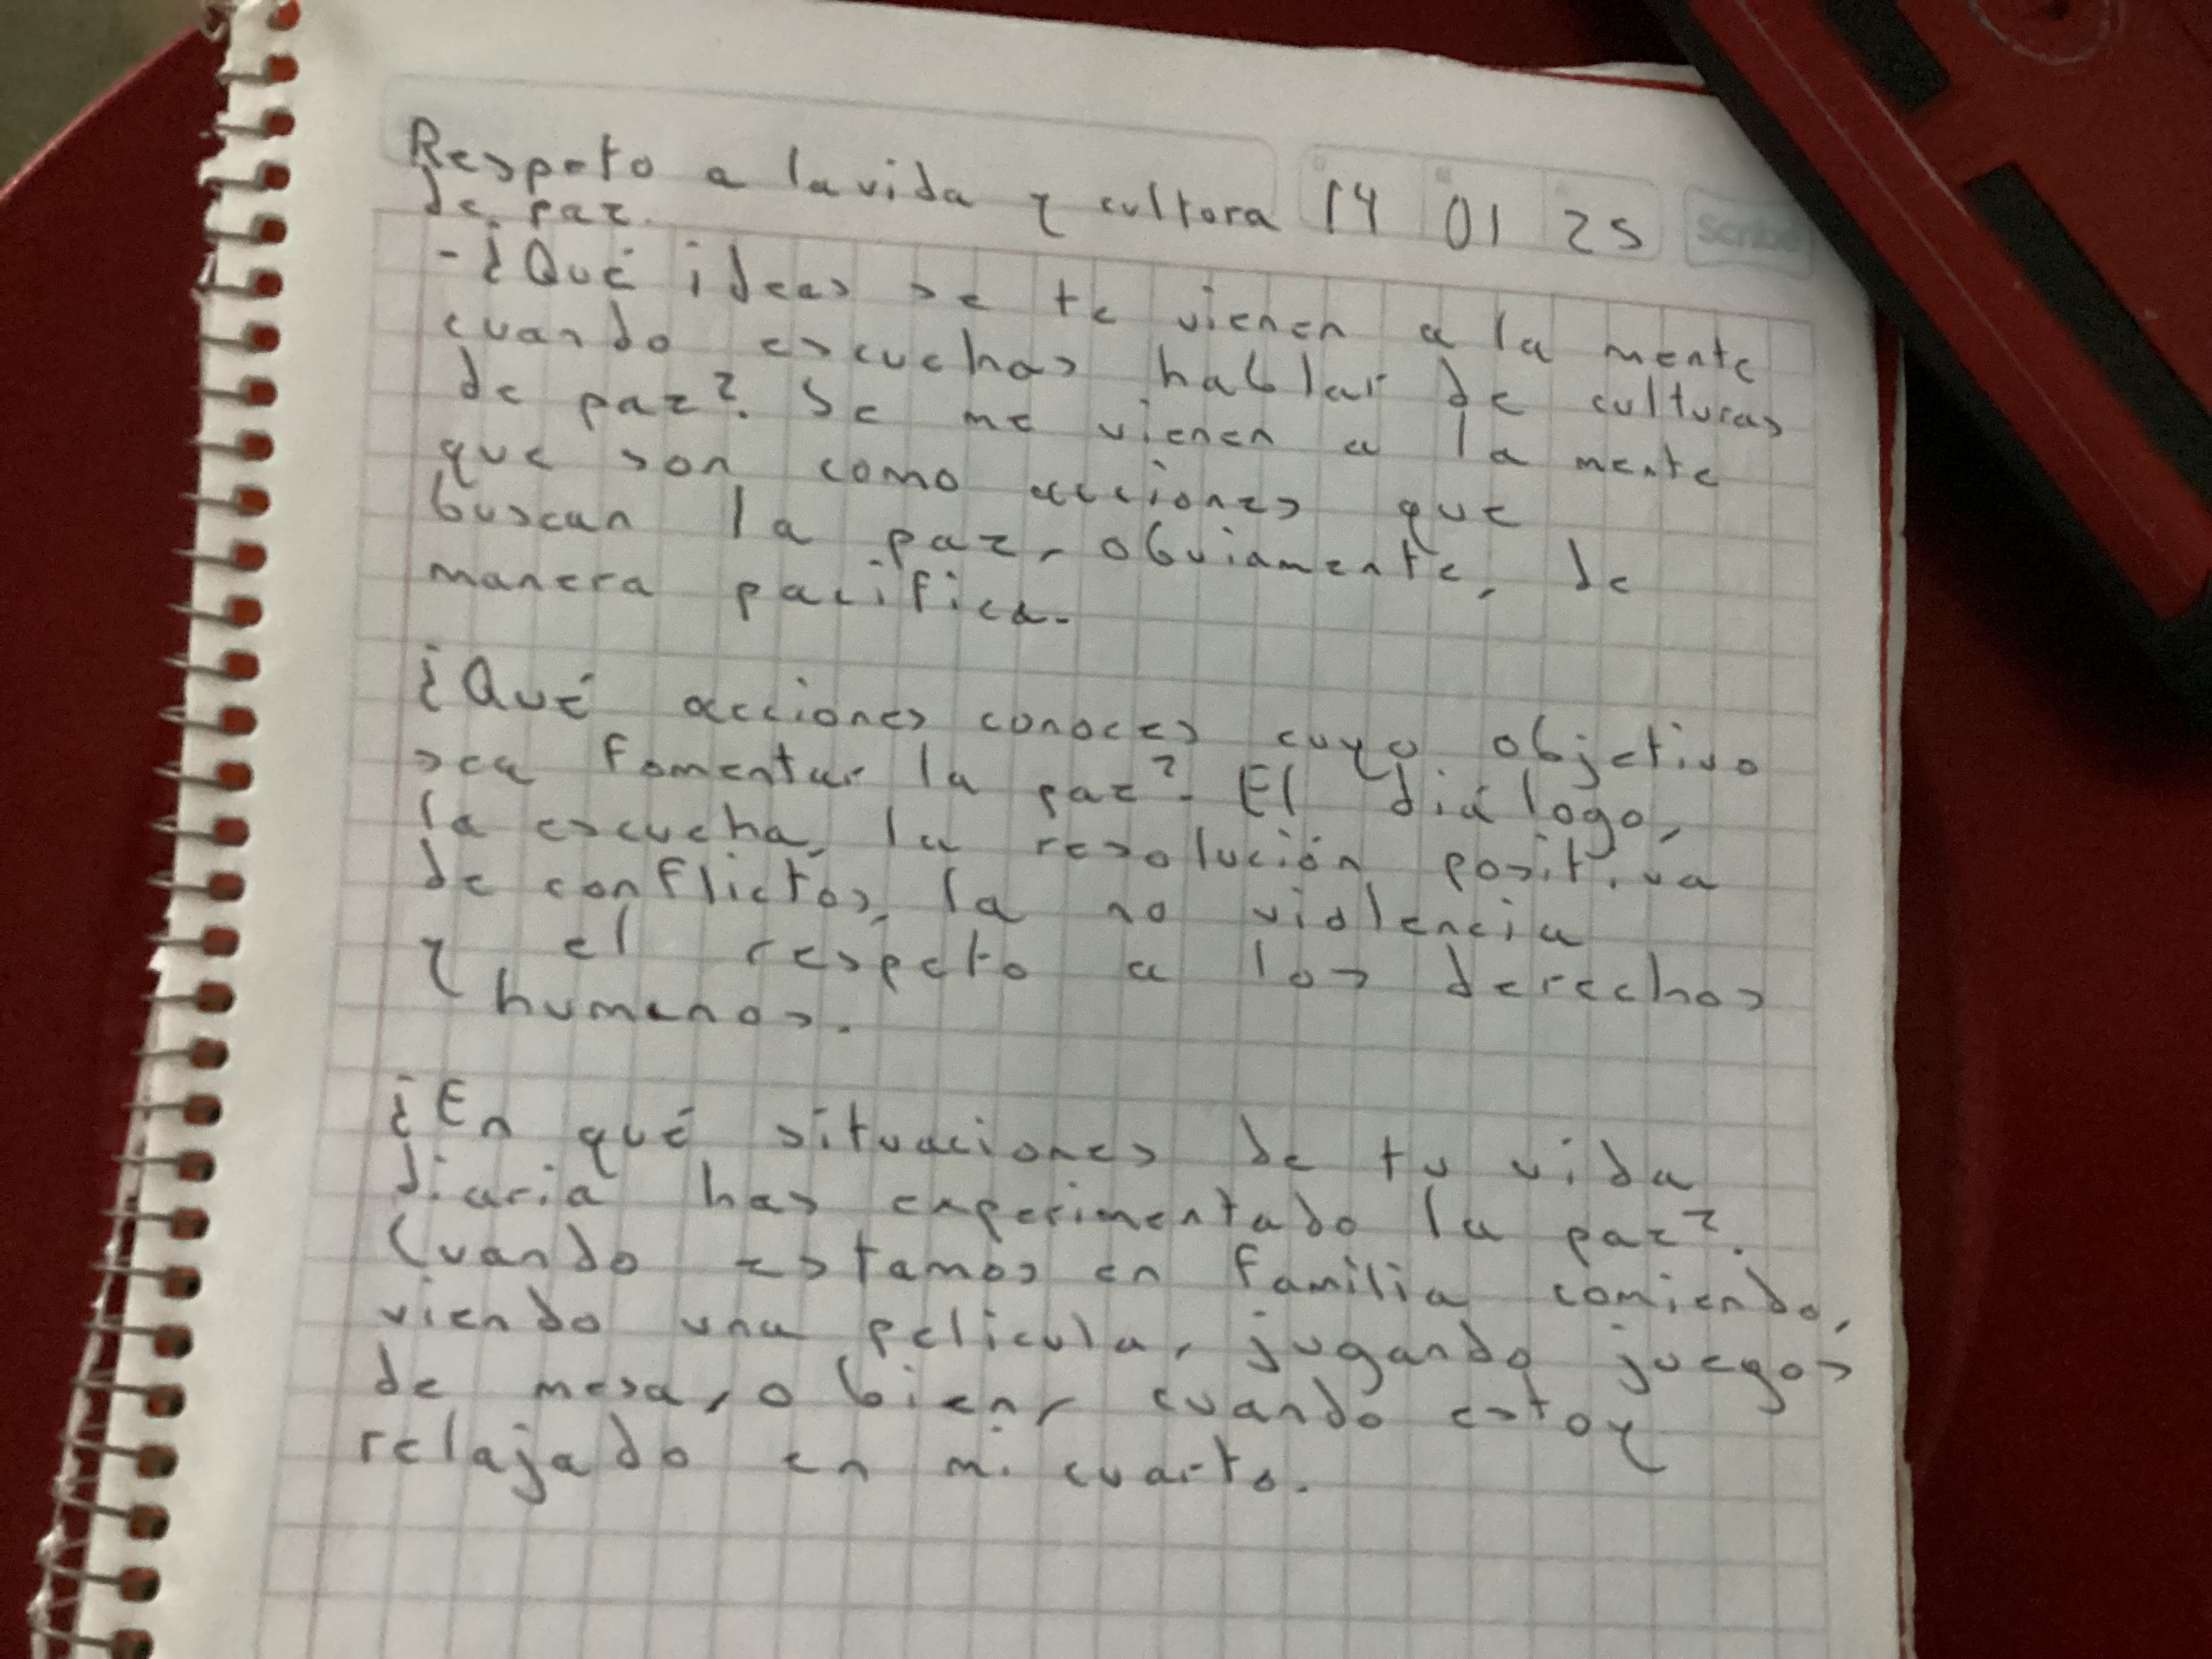 Respeto a la vida y cultura 14 01 25
de paz.
Scribe
- ¿Qué ideas se te vienen a la mente
cuando escuchas hablar de culturas
de paz?. Se me vienen a la mente
que son como acciones que
buscan la paz, obviamente, de
manera pacífica.
¿Qué acciones conoces cuyo objetivo
sea fomentar la paz?. El diálogo,
la escucha, la resolución positiva
de conflictos, la no violencia
y el respeto a los derechos
humanos.
¿En qué situaciones de tu vida
diaria has experimentado la paz?.
Cuando estamos en familia comiendo,
viendo una película, jugando juegos
de mesa, o bien, cuando estoy
relajado en mi cuarto.